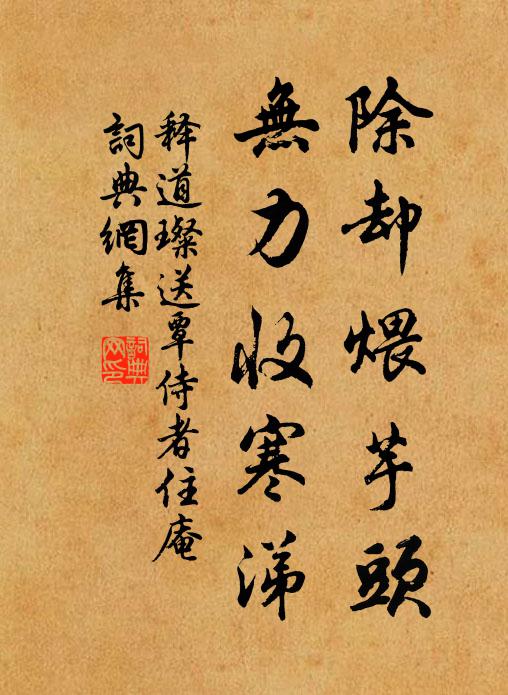 除却煨芋頭
無力收寒涕
释道璨送覃侍者住庵
詞典網集
詞典網印